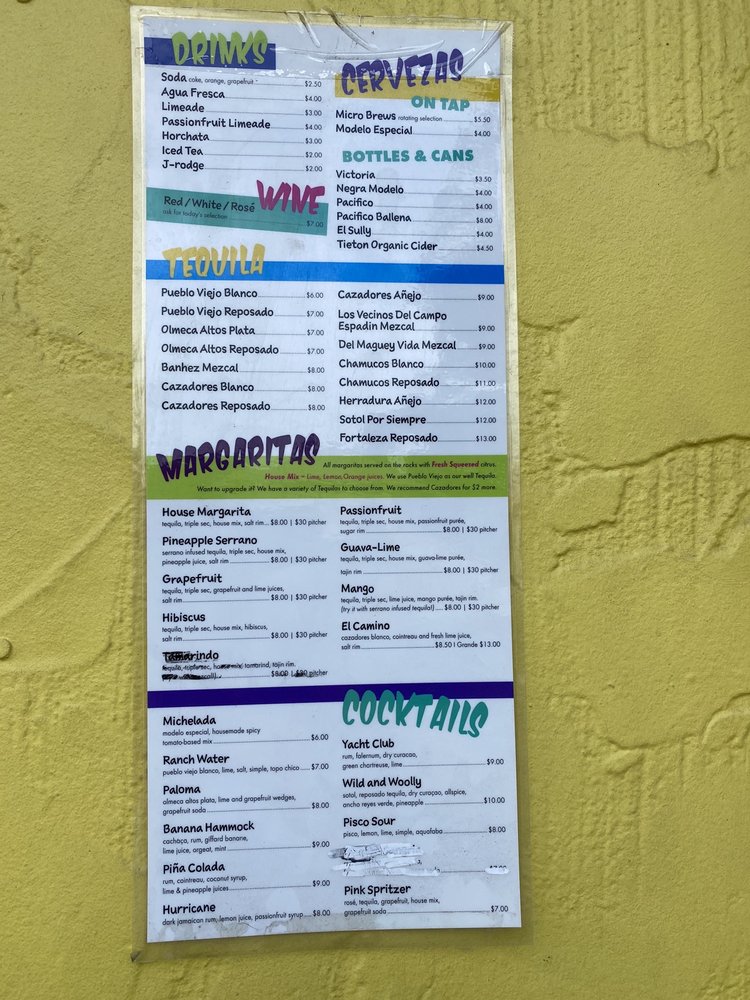 DRINKS
Soda coke, orange, grapefruit $2.50
Agua Fresca $4.00
Limeade $3.00
Passionfruit Limeade $4.00
Horchata $3.00
Iced Tea $2.00
J-rodge $2.00
WINE
Red / White / Rosé
ask for today's selection $7.00
CERVEZAS
ON TAP
Micro Brews rotating selection $5.50
Modelo Especial $4.00
BOTTLES & CANS
Victoria $3.50
Negra Modelo $4.00
Pacifico $4.00
Pacifico Ballena $8.00
El Sully $4.00
Tieton Organic Cider $4.50
TEQUILA
Pueblo Viejo Blanco $6.00
Pueblo Viejo Reposado $7.00
Olmeca Altos Plata $7.00
Olmeca Altos Reposado $7.00
Banhez Mezcal $8.00
Cazadores Blanco $8.00
Cazadores Reposado $8.00
Cazadores Añejo $9.00
Los Vecinos Del Campo
Espadin Mezcal $9.00
Del Maguey Vida Mezcal $9.00
Chamucos Blanco $10.00
Chamucos Reposado $11.00
Herradura Añejo $12.00
Sotol Por Siempre $12.00
Fortaleza Reposado $13.00
MARGARITAS
All margaritas served on the rocks with Fresh Squeezed citrus.
House Mix = Lime, Lemon, Orange juices. We use Pueblo Viejo as our well Tequila.
Want to upgrade it? We have a variety of Tequilas to choose from. We recommend Cazadores for $2 more.
House Margarita
tequila, triple sec, house mix, salt rim $8.00 | $30 pitcher
Pineapple Serrano
serrano infused tequila, triple sec, house mix,
pineapple juice, salt rim $8.00 | $30 pitcher
Grapefruit
tequila, triple sec, grapefruit and lime juices,
salt rim $8.00 | $30 pitcher
Hibiscus
tequila, triple sec, house mix, hibiscus,
salt rim $8.00 | $30 pitcher
Tamarindo
tequila, triple sec, house mix, tamarind, tajin rim.
$8.00 | $30 pitcher
Passionfruit
tequila, triple sec, house mix, passionfruit purée,
sugar rim $8.00 | $30 pitcher
Guava-Lime
tequila, triple sec, house mix, guava-lime purée,
tajin rim $8.00 | $30 pitcher
Mango
tequila, triple sec, lime juice, mango purée, tajin rim.
(try it with serrano infused tequila!) $8.00 | $30 pitcher
El Camino
cazadores blanco, cointreau and fresh lime juice,
salt rim $8.50 | Grande $13.00
COCKTAILS
Michelada
modelo especial, housemade spicy
tomato-based mix $6.00
Ranch Water
pueblo viejo blanco, lime, salt, simple, topo chico $7.00
Paloma
olmeca altos plata, lime and grapefruit wedges,
grapefruit soda $8.00
Banana Hammock
cachaça, rum, giffard banane,
lime juice, orgeat, mint $9.00
Piña Colada
rum, cointreau, coconut syrup,
lime & pineapple juices $9.00
Hurricane
dark jamaican rum, lemon juice, passionfruit syrup $8.00
Yacht Club
rum, falernum, dry curacao,
green chartreuse, lime $9.00
Wild and Woolly
sotol, reposado tequila, dry curaçao, allspice,
ancho reyes verde, pineapple $10.00
Pisco Sour
pisco, lemon, lime, simple, aquafaba $8.00
Pink Spritzer
rosé, tequila, grapefruit, house mix,
grapefruit soda $7.00